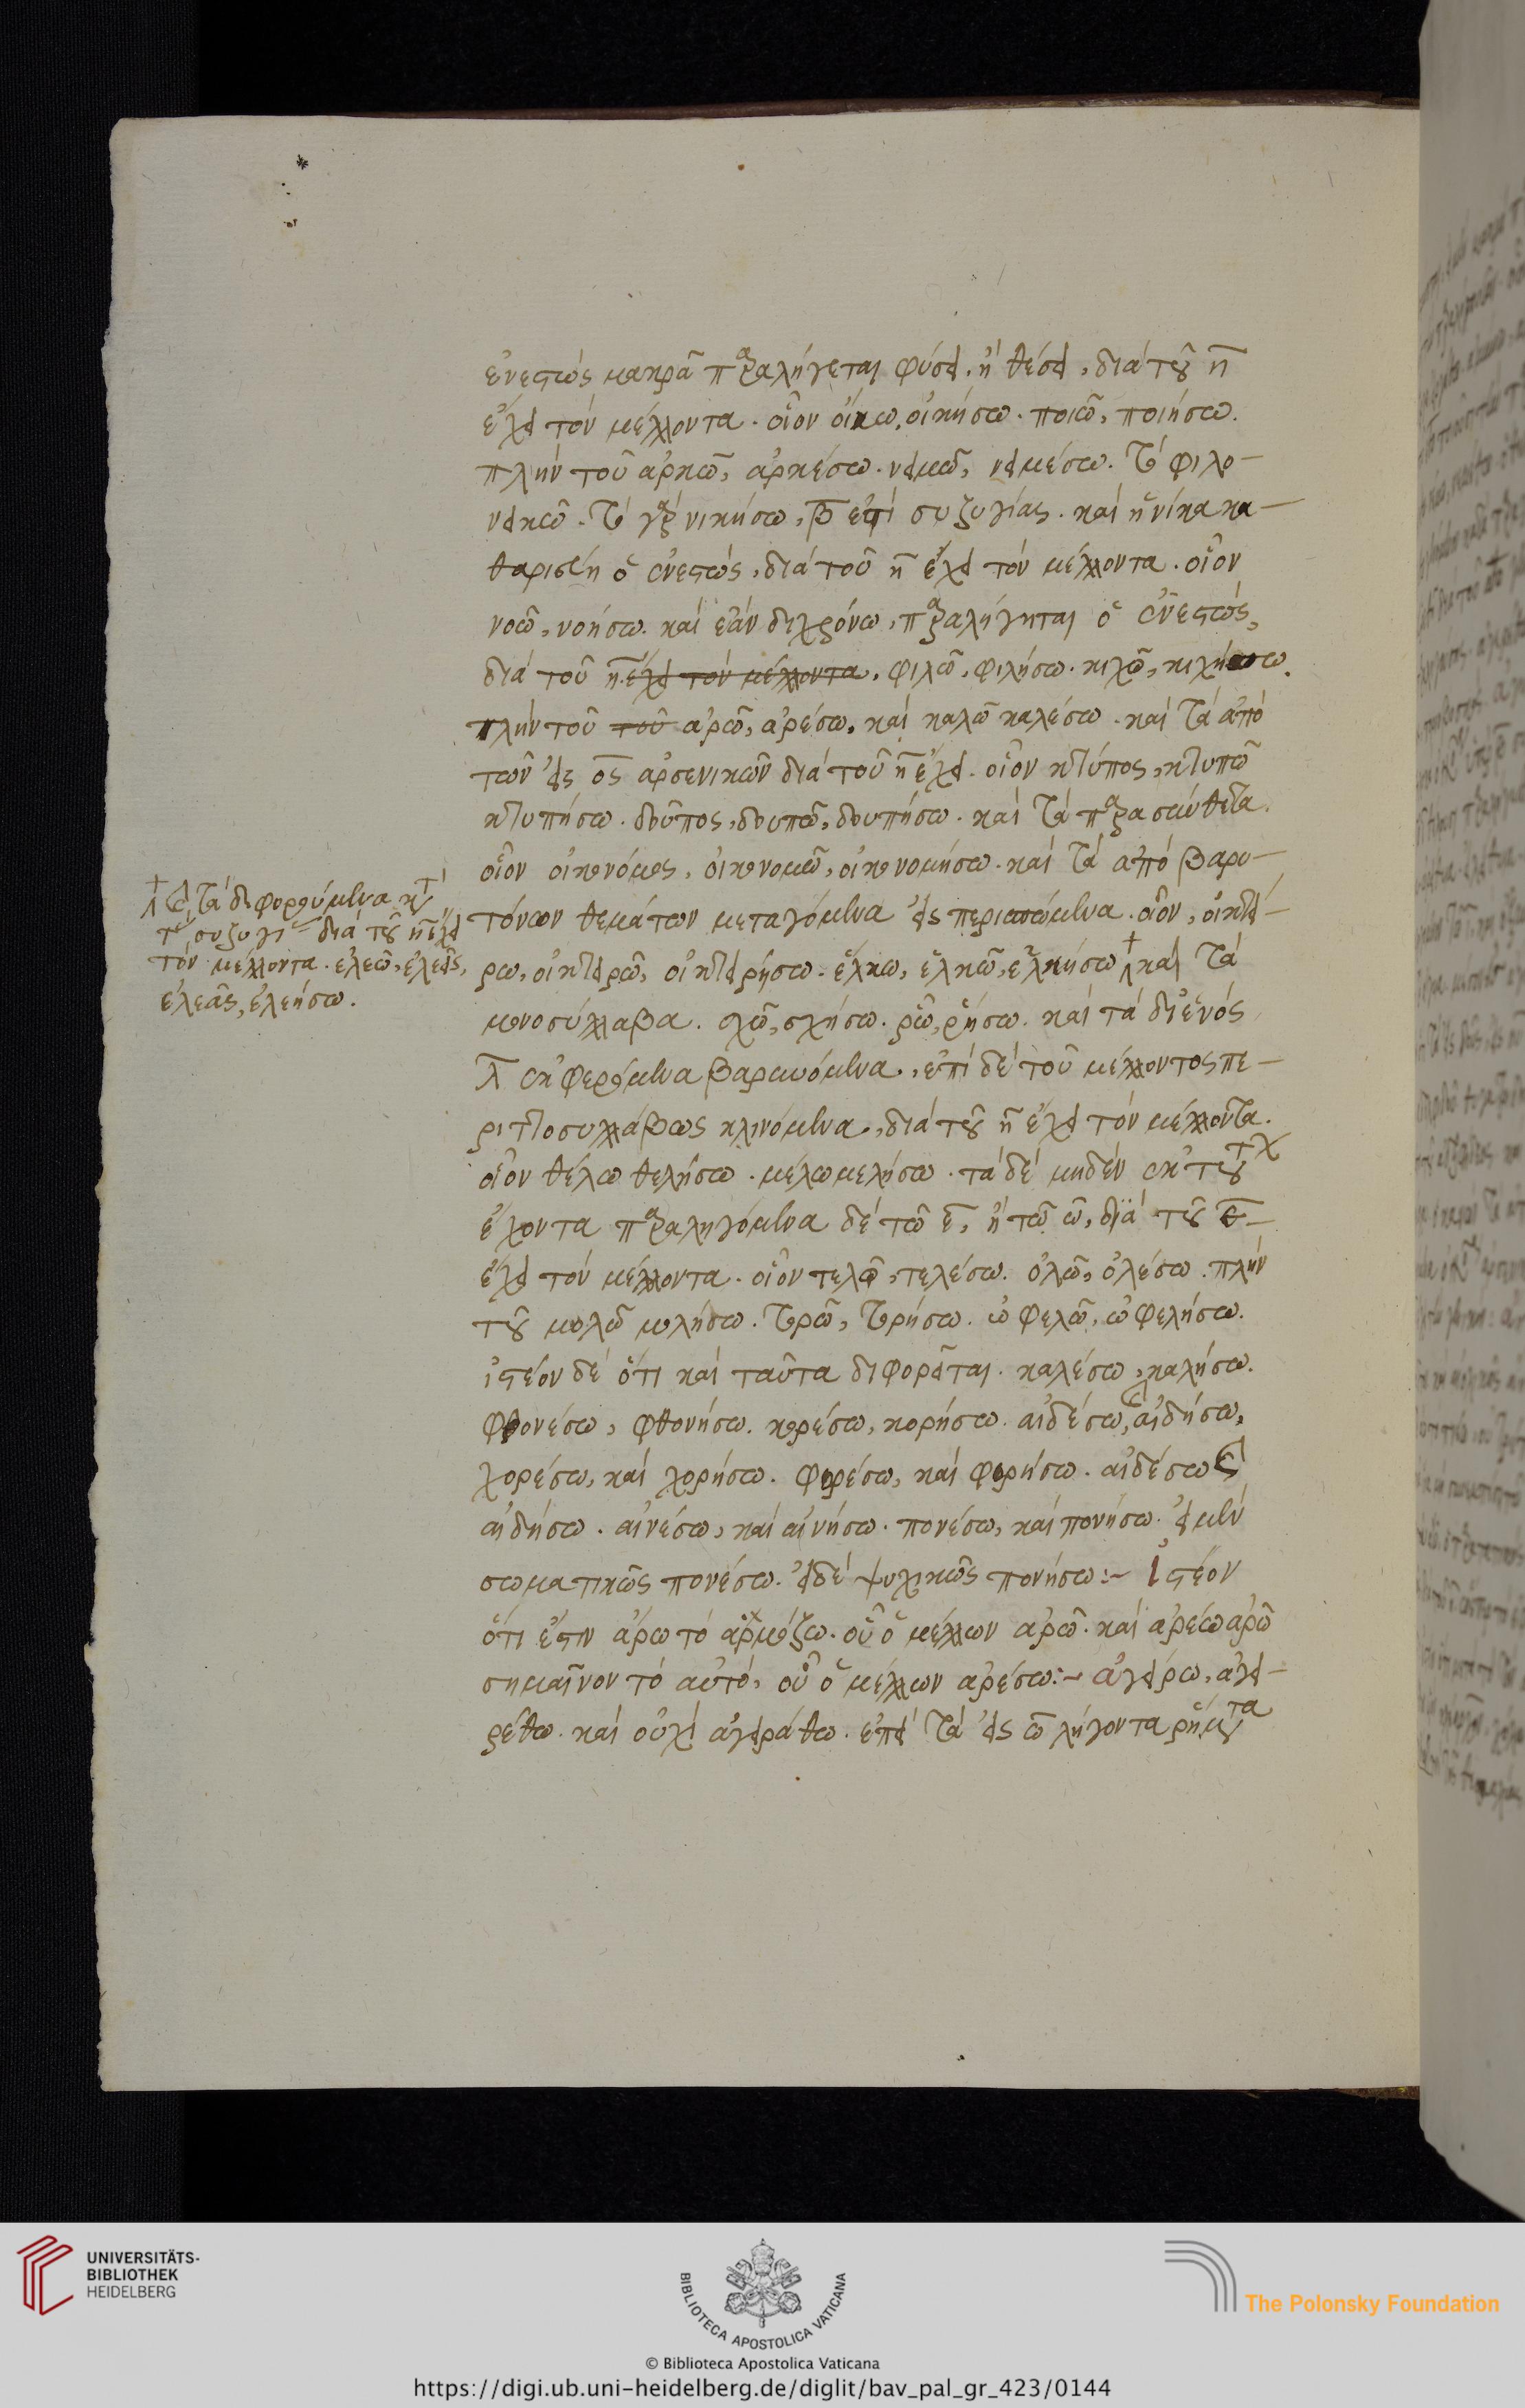 ἐνεστὼς μακρᾷ παραλήγεται φύσει, ἢ θέσει, διὰ τοῦ η
ἔχει τὸν μέλλοντα. οἷον οἰκῶ, οἰκήσω. ποιῶ, ποιήσω.
πλὴν τοῦ ἀρκῶ, ἀρκέσω. νεμῶ, νεμέσω. τὸ φιλο-
νεικῶ. τὸ γὰρ νικήσω, β ἐστὶ συζυγίας. καὶ ἡνίκα κα-
θαρισθῇ ὁ ἐνεστώς, διὰ τοῦ η ἔχει τὸν μέλλοντα. οἷον
νοῶ, νοήσω. καὶ ἐὰν διχρόνω, παραλήγηται ὁ ἐνεστώς,
διὰ τοῦ η ἔχει τὸν μέλλοντα, φιλῶ, φιλήσω. κιχῶ, κιχήσω.
πλὴν τοῦ τοῦ ἀρῶ, ἀρέσω, καὶ καλῶ καλέσω. καὶ τὰ ἀπὸ
τῶν εἰς ος ἀρσενικῶν διὰ τοῦ η ἔχει. οἷον κτύπος, κτυπῶ
κτυπήσω. δοῦπος, δουπῶ, δουπήσω. καὶ τὰ παρασύνθετα.
οἷον οἰκονόμος, οἰκονομῶ, οἰκονομήσω. καὶ τὰ ἀπὸ βαρυ-
τόνων θεμάτων μεταγόμενα εἰς περισπώμενα. οἷον, οἰκτεί-
ρω, οἰκτειρῶ, οἰκτειρήσω. ἕλκω, ἑλκῶ, ἑλκήσω καὶ τὰ
μονοσύλλαβα. σχῶ, σχήσω. ῥῶ, ῥήσω. καὶ τὰ δι' ἑνὸς
λ ἐκφερόμενα βαρυνόμενα, ἐπὶ δὲ τοῦ μέλλοντος πε-
ριττοσυλλάβως κλινόμενα, διὰ τοῦ η ἔχει τὸν μέλλοντα.
οἷον θέλω θελήσω. μέλω μελήσω. τὰ δὲ μηδὲν ἐκ τού
ἔχοντα παραληγόμενα δὲ τῶ ε, ἢ τῶ ω, διὰ τοῦ ε
ἔχει τὸν μέλλοντα. οἷον τελῶ, τελέσω. ὀλῶ, ὀλέσω. πλὴν
τοῦ μολῶ μολήσω. τορῶ, τορήσω. ὠφελῶ, ὠφελήσω.
ἰστέον δὲ ὅτι καὶ ταῦτα διφορεῖται. καλέσω, καλήσω.
φθονέσω, φθονήσω. κορέσω, κορήσω. αἰδέσω, αἰδήσω,
χορέσω, καὶ χορήσω. φορέσω, καὶ φορήσω. αἰδέσω καὶ
αἰδήσω. αἰνέσω, καὶ αἰνήσω. πονέσω, καὶ πονήσω. εἰ μὲν
σωματικῶς πονέσω. εἰ δὲ ψυχικῶς πονήσω:~ ἰστέον
ὅτι ἔστιν ἄρω τὸ ἁρμόζω. οὗ ὁ μέλλων ἀρῶ. καὶ ἀρέω ἀρῶ
σημαῖνον τὸ αὐτό, οὗ ὁ μέλλων ἀρέσω:~ ἀγείρω, ἀγει-
ρέθω. καὶ οὐχὶ ἀγειράθω. ἐπεὶ τὰ εἰς ω λήγοντα ῥήματα
καὶ τὰ διφορούμενα κατὰ
τὴν συζυγίαν διὰ τοῦ η ἔχει
τὸν μέλλοντα. ἐλεῶ, ἐλεεῖς,
ἐλεᾷς, ἐλεήσω.
UNIVERSITÄTS-
BIBLIOTHEK
HEIDELBERG
BIBLIOTECA APOSTOLICA VATICANA
© Biblioteca Apostolica Vaticana
The Polonsky Foundation
https://digi.ub.uni-heidelberg.de/diglit/bav_pal_gr_423/0144